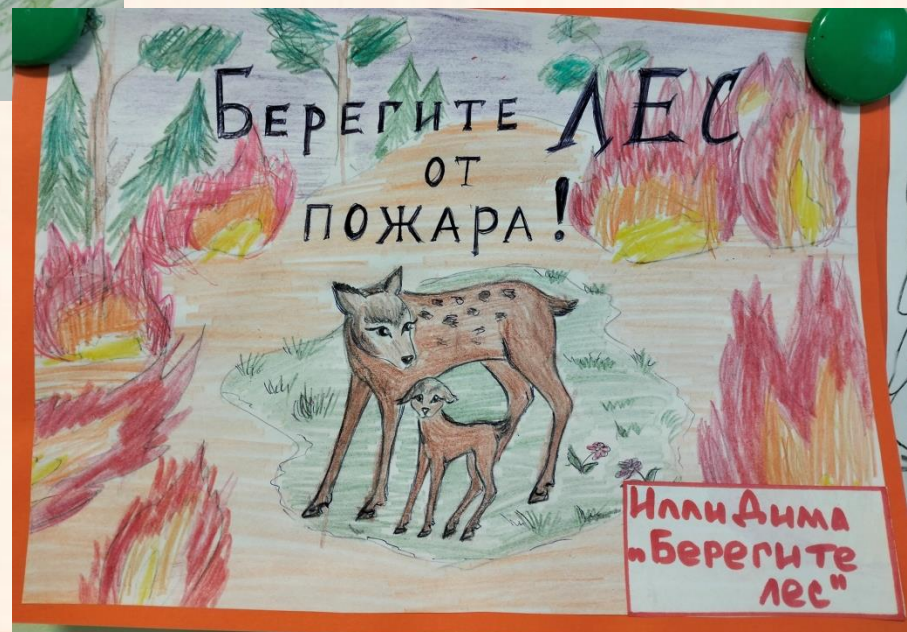 Берегите ЛЕС
от
пожара!
Илли Дима
„Берегите
лес"